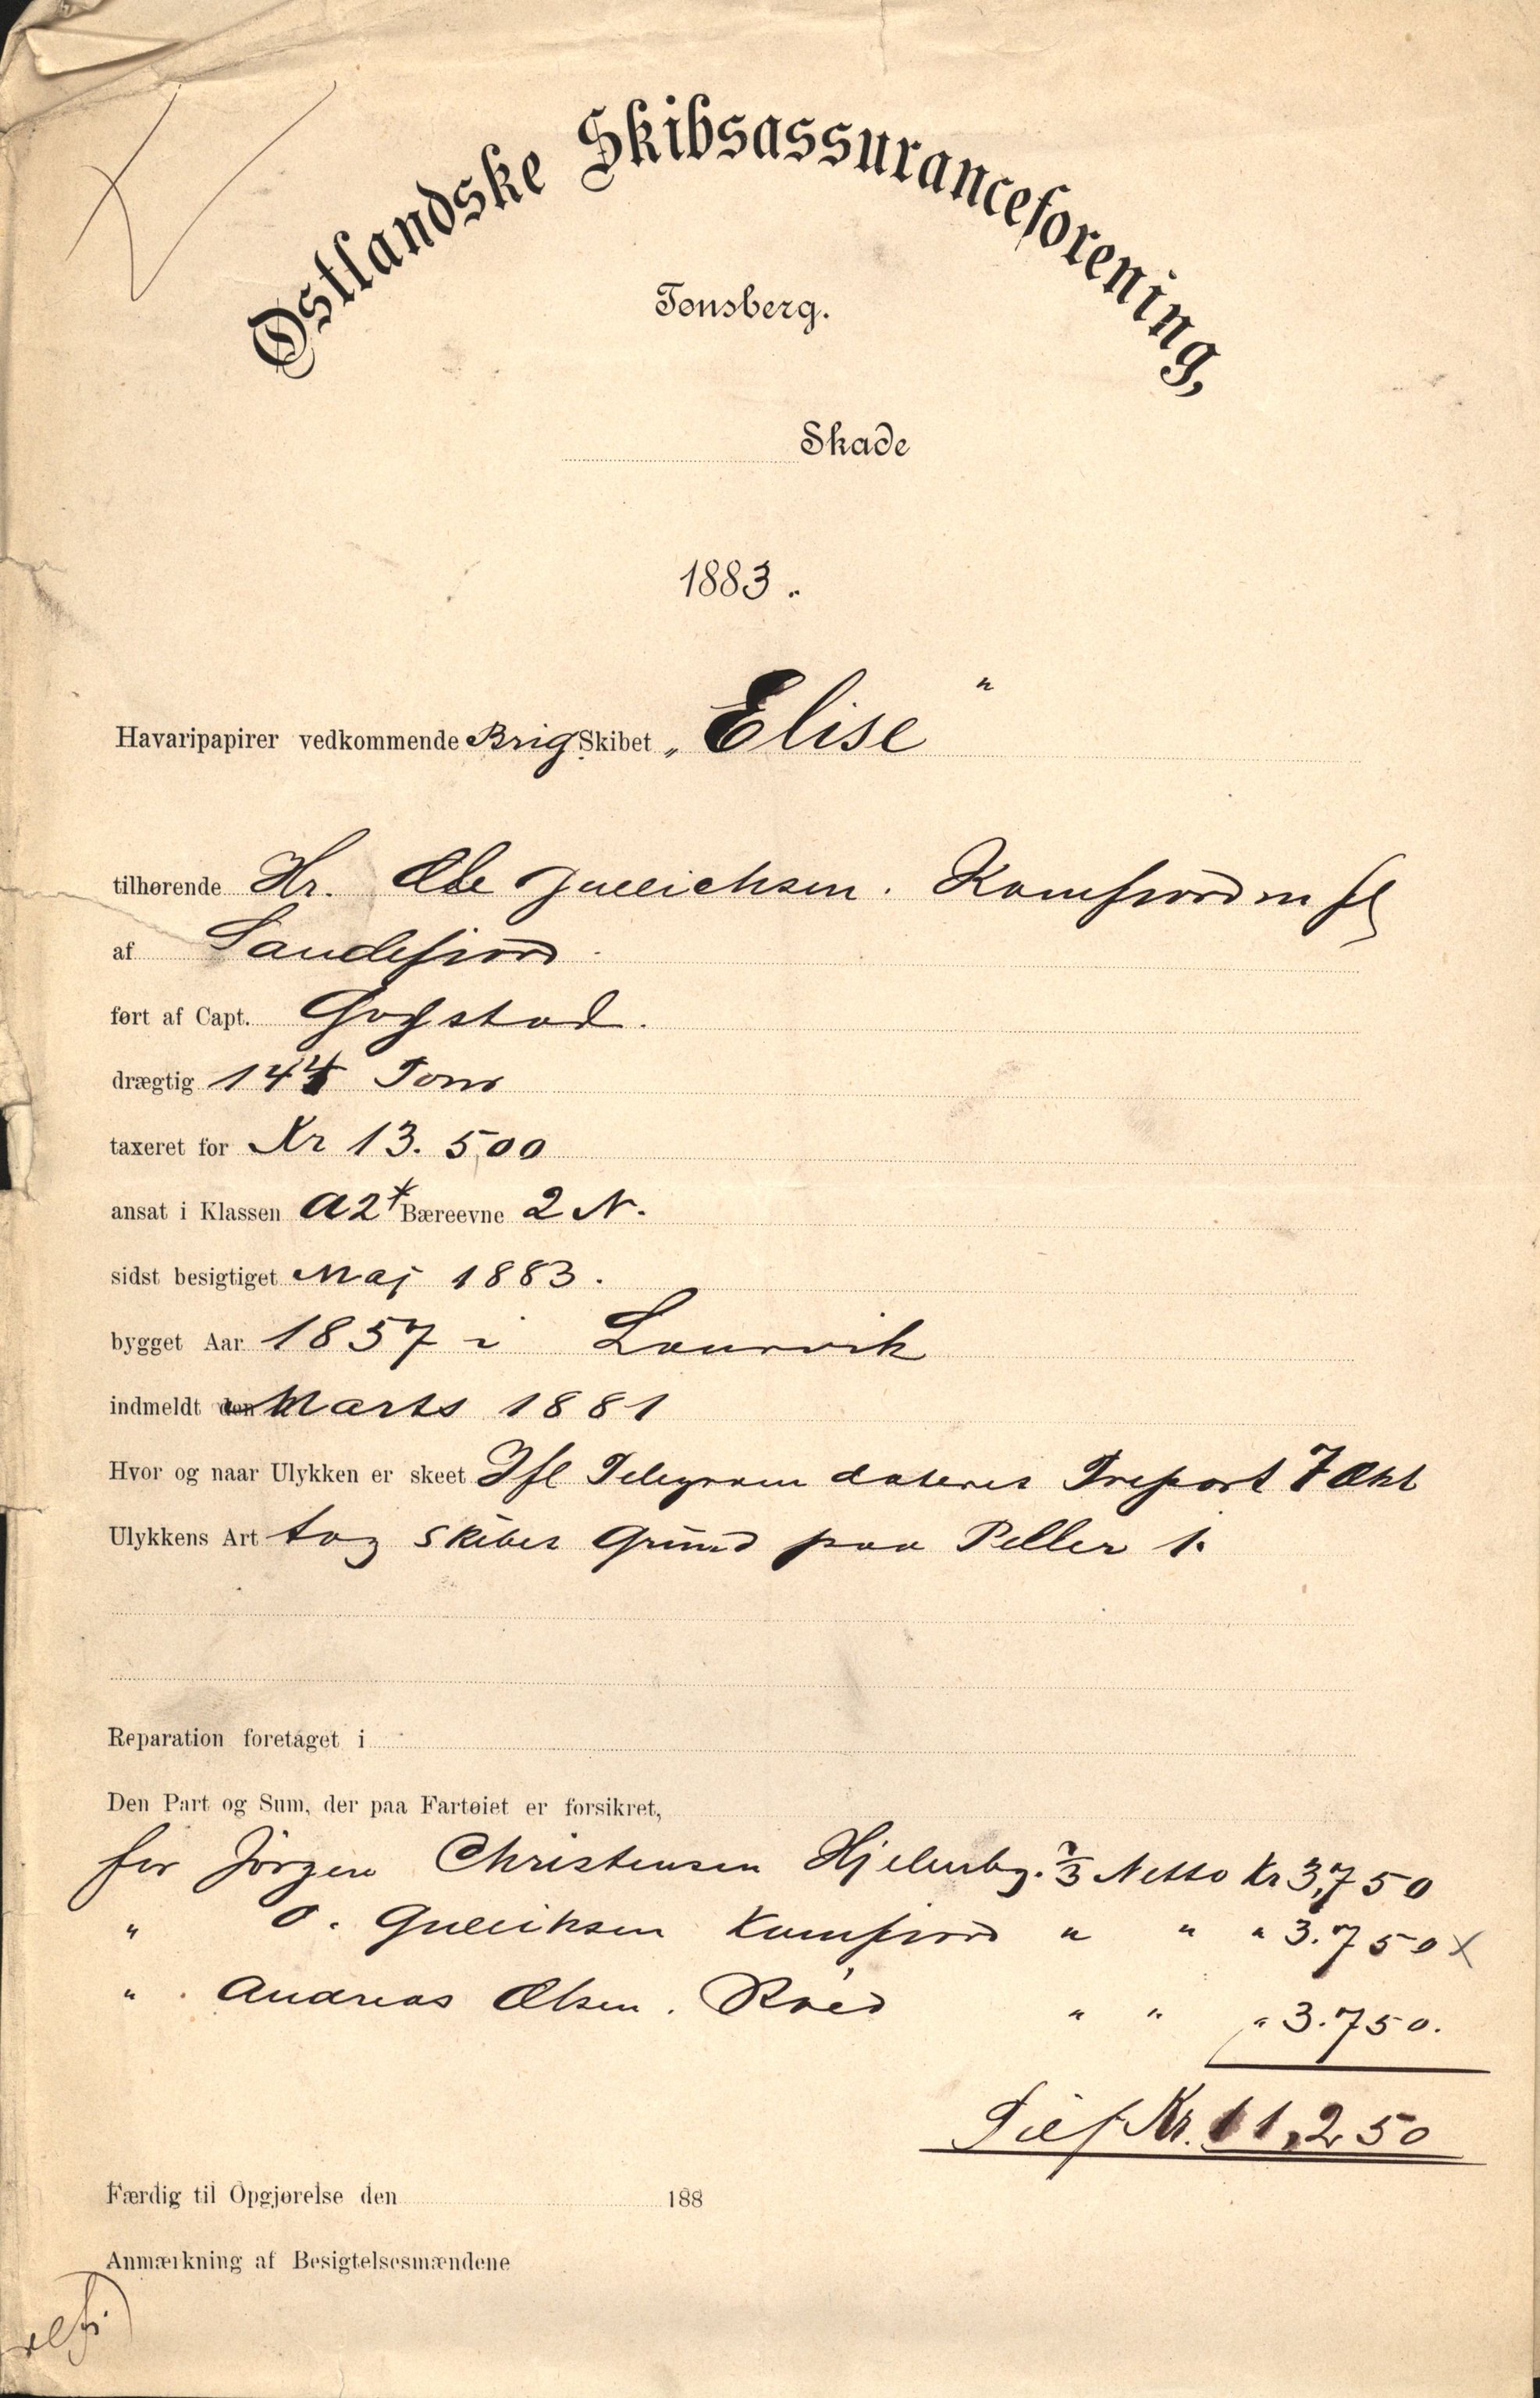 Østlandske Skibsassuranceforening,
Tønsberg.
Skade
1883.
Havaripapirer vedkommende Brig Skibet „Elise"
tilhørende Hr. Ole Gullichsen. Kamfjord m fl
af Sandefjord
ført af Capt. Gogstad.
drægtig 144 Tons
taxeret for Kr 13.500
ansat i Klassen A2* Bæreevne 2 N.
sidst besigtiget Maj 1883.
bygget Aar 1857 i Laurvik
indmeldt den Marts 1881
Hvor og naar Ulykken er skeet Ifl Telegram dateret Treport 7 Okt
Ulykkens Art tog Skibet Grund paa
Reparation foretaget i
Den Part og Sum, der paa Fartøiet er forsikret,
for Jörgen Christensen 1/3 Netto Kr 3,750
" O. Gulliksen Kamfjord " " " 3.750 x
" Andreas Olsen. Röed " " " 3.750.
Kr. 11,250
Færdig til Opgjørelse den 188
Anmærkning af Besigtelsesmændene